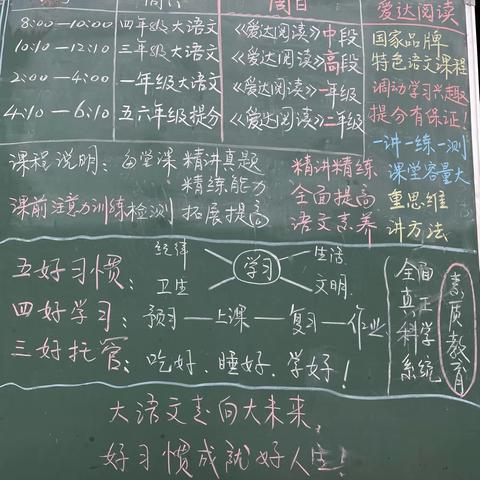 周日
爱达阅读
8:00—10:00 四年级大语文 《爱达阅读》中段
10:10—12:10 三年级大语文 《爱达阅读》高段
2:00—4:00 一年级大语文 《爱达阅读》一年级
4:10—6:10 五六年级提分 《爱达阅读》二年级
国家品牌
特色语文课程
调动学习兴趣
提分有保证!
一讲一练一测
课堂容量大
重思维
讲方法
课程说明:每堂课 精讲真题
精练能力
课前注意力训练检测 拓展提高
精讲精练
全面提高
语文素养
五好习惯:
纪律
卫生
学习
生活
文明
四好学习:预习—上课—复习—作业
三好托管:吃好、睡好、学好!
全面
真正
科学
系统
素质教育
大语文走向大未来,
好习惯成就好人生!